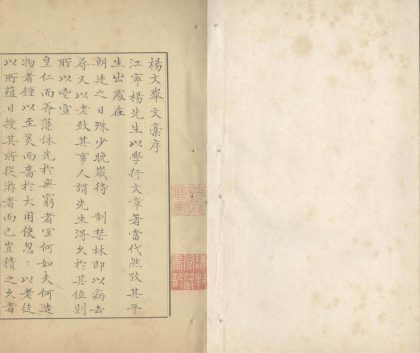 楊文舉文稾序
江寧楊先生以學行文章著當代然攷其平
生出處在
朝廷之日殊少晚歲待 制禁林即以病去
尋又以老致其事人謂先生得久於其位則
所以宣
皇仁而黼藻休光於無窮者宜何如夫何造
物者鍾以至美而嗇於大用使忽忽以老後
以所蘊日授其所從游者而已豈積之久者